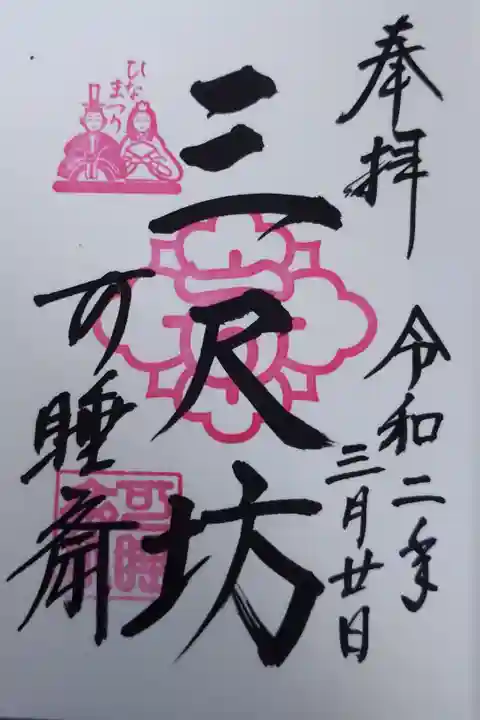 奉拝
令和二年
三月廿日
三尺坊
可睡斎
ひなまつり